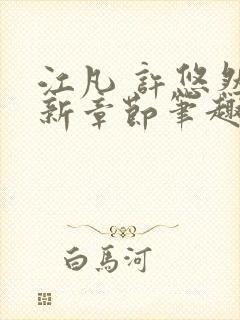 江凡 許悠然
新章節筆趣
白馬河